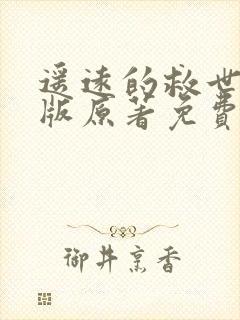 遥远的救世
版原著免费
御井烹香